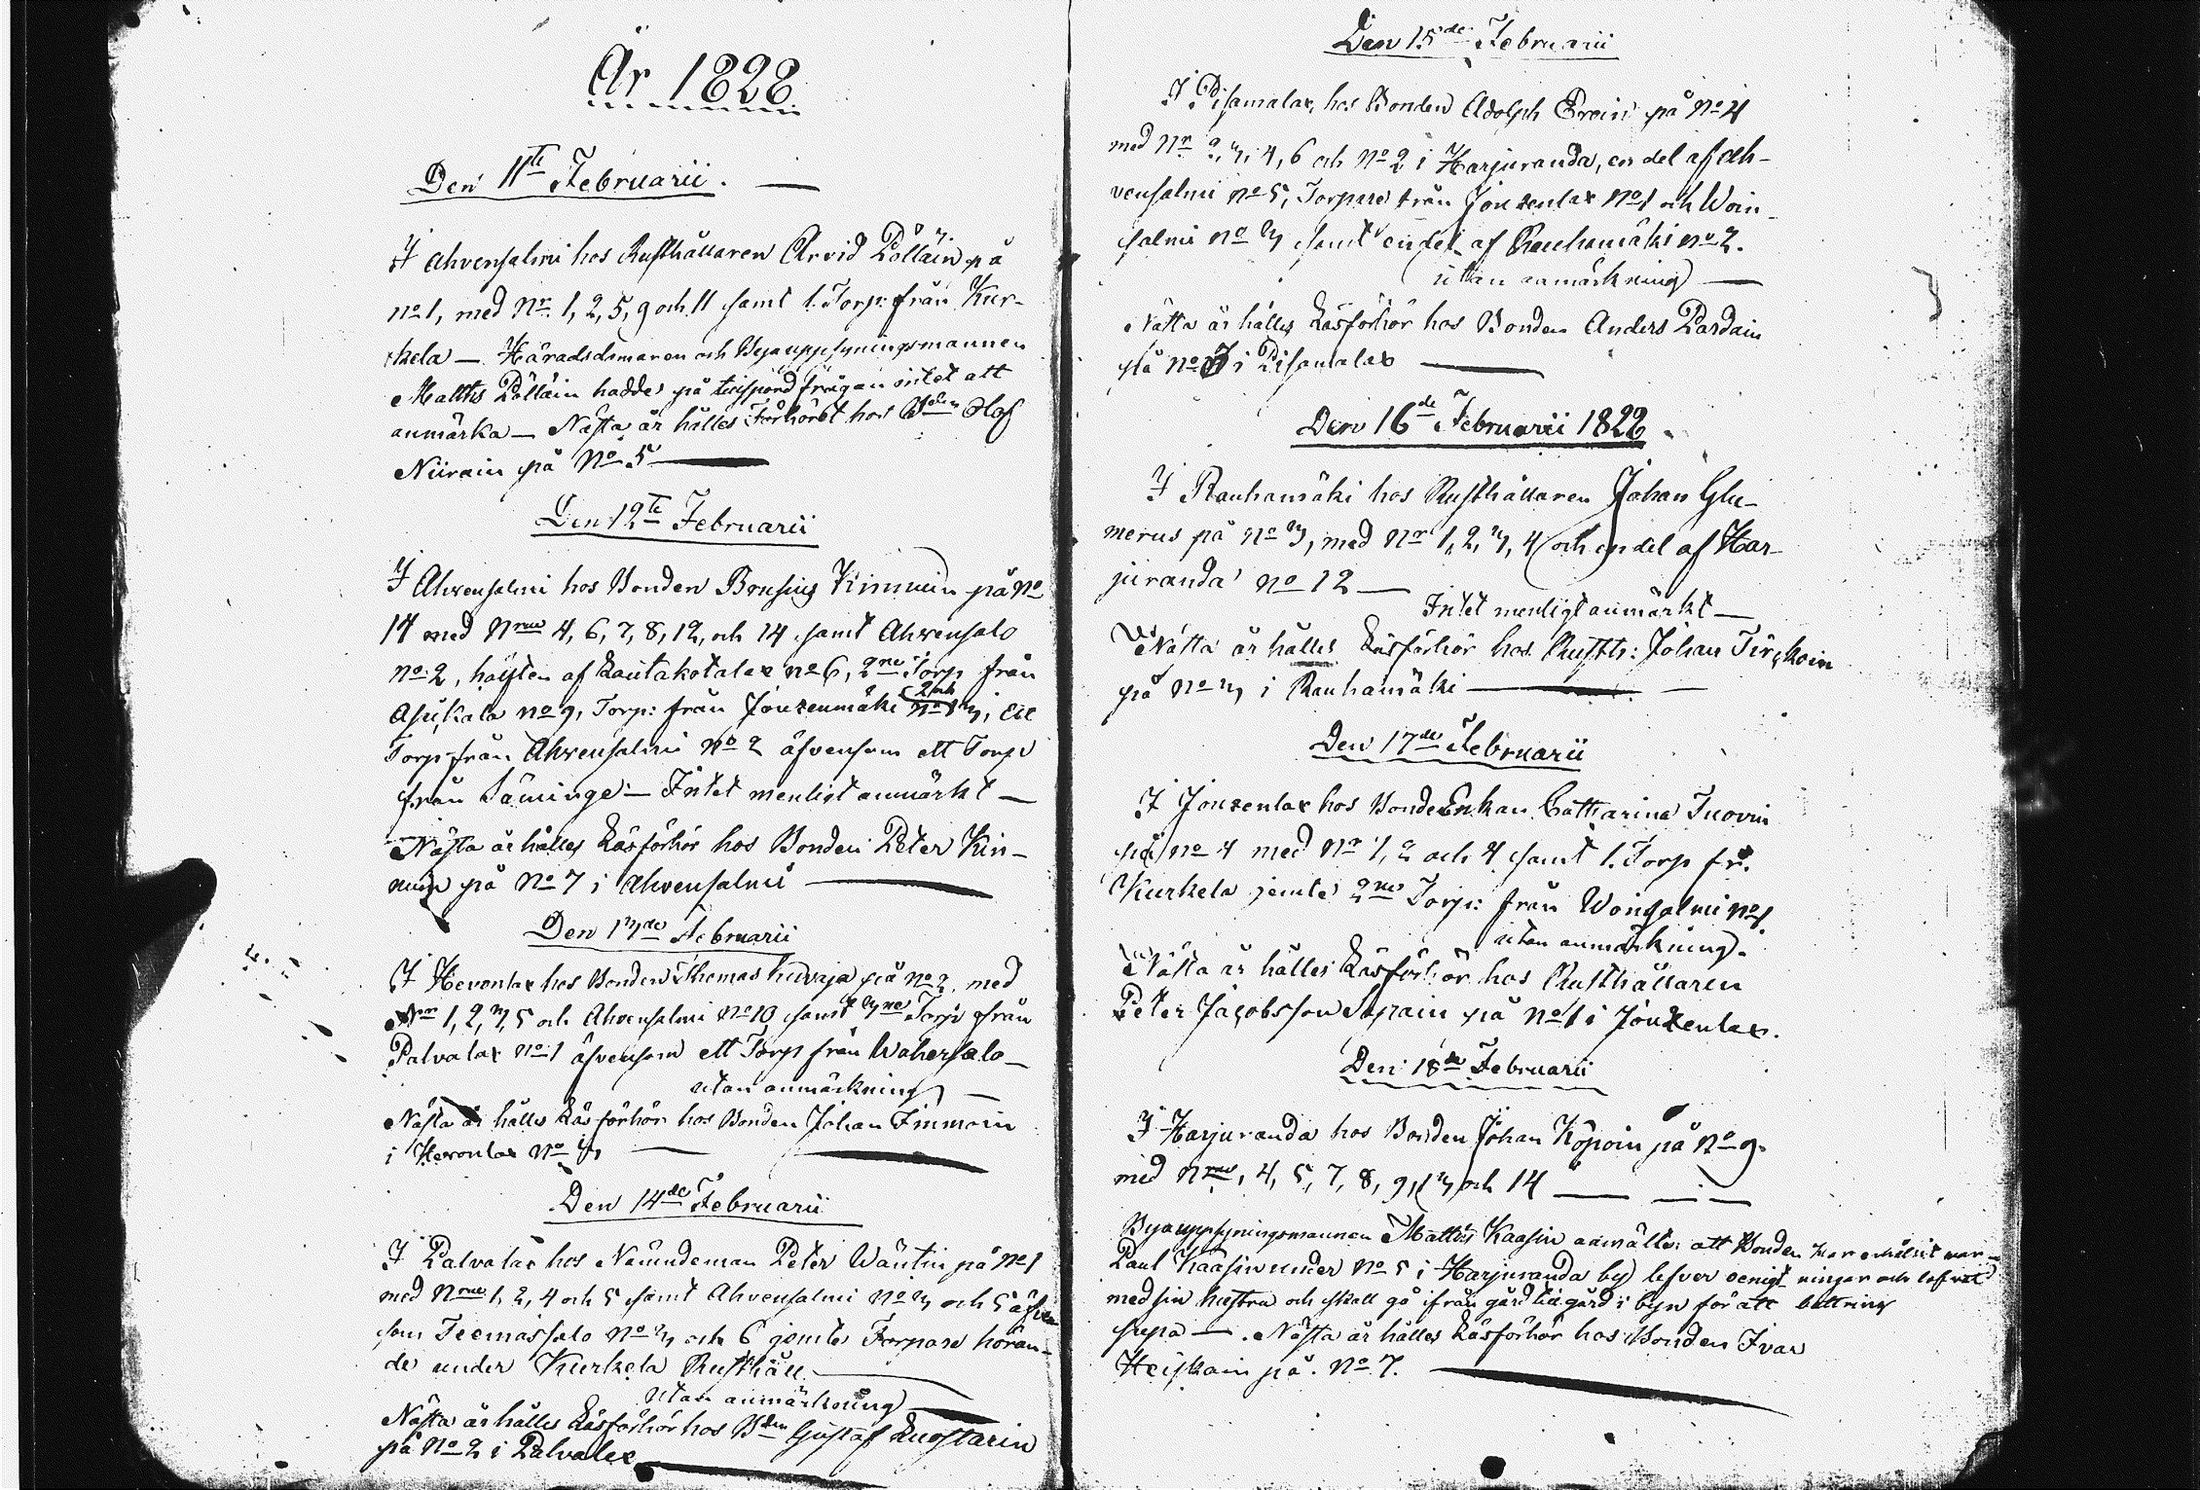 År 1828
Den 11te Februarii. —
I Ahvensalmi hos Rusthållaren Arvid Pölläin på
No 1, med Nr 1, 2, 5, 9 och 11 samt 1. Torp: från Kur-
kela — Häradsdomaren och Byauppsyningsmannen
Matths Pölläin hade på tillspord frågan intet att
anmärka — Nästa år hålles Förhöret hos Bden Olof
Niirain på No 5 —
Den 12te Februarii
I Ahvensalmi hos Bonden Brusius Kinnuin på No
14 med Nrne 4, 6, 7, 8, 12, och 14 samt Ahvensalo
No 2, hälften af Lautakotalax No 6, 2ne Torp från
Asikkala No 9, Torp: från Jouzenmäki No 3, Ett
Torp från Ahvensalmi No 2 äfvensom ett Torp
från Säminge — Intet menligt anmärkt —
Nästa år hålles Läsförhör hos Bonden Peter Kin-
nuin på No 7 i Ahvensalmi —
Den 13de Februarii
I Hevonlax hos Bonden Thomas Kuvaja på No 2. med
Nr 1, 2, 3, 5 och Ahvensalmi No 10 samt 3ne Torp från
Palvalax No 1 äfvensom ett Torp från Wahersalo —
utan anmärkning —
Nästa år hålles Läsförhör hos Bonden Johan Immoin
i Hevonlax No 3 —
Den 14de Februarii
I Palvalax hos Nämndeman Peter Wäntin på No 1
med Nrne 1, 2, 4 och 5 samt Ahvensalmi No 3 och 5 äfven
som Teemassalo No 3 och 6 jemte Torpare höran-
de under Kurkela Rusthåll. —
Utan anmärkning —
Nästa år hålles Läsförhör hos Bden Gustaf Luostarin
på No 2 i Palvalax —
Den 15de Februarii
I Pisamalax, hos Bonden Adolph Eroin på No 4
med Nr 2, 3, 4, 6 och No 2 i Harjuranda, en del af Ah-
vensalmi No 5, Torpare från Jouzenlax No 1 och Woin-
salmi No 3 samt en del af Rauhamäki No 2.
utan anmärkning —
Nästa år hålles Läsförhör hos Bonden Anders Pardain
på No 3 i Pisamalax —
Den 16de Februarii 1828
I Rauhamäki hos Rusthållaren Johan Glu-
merus på No 3, med Nr 1, 2, 3, 4 och en del af Har-
juranda No 12 —
Intet menligt anmärkt —
Nästa år hålles Läsförhör hos Rusth: Johan Tirkoin
på No 3 i Rauhamäki —
Den 17de Februarii
I Jouzenlax hos Bonde Enkan Catharina Inovin
på No 4 med Nr 1, 2 och 4 samt 1. Torp fr.
Kurkela jemte 2ne Torp: från Woinsalmi No 1
utan anmärkning.
Nästa år hålles Läsförhör hos Rusthållaren
Peter Jacobsson Sapain på No 1 i Jouzenlax.
Den 18de Februarii
I Harjuranda hos Bonden Johan Köpoin på No 9.
med Nrne, 4, 5, 7, 8, 9, 13 och 14 —
Byauppsyningsmannen Matths Kaasin anmälte att Bonden har erhållit var-
Paul Kaasin under No 5 i Harjuranda by lefver oenigt ningar och lofvat
med sin hustru och skall gå ifrån gård till gård i byn för att bättring
supa —. Nästa år hålles Läsförhör hos Bonden Ivar
Heiskain på No 7. —